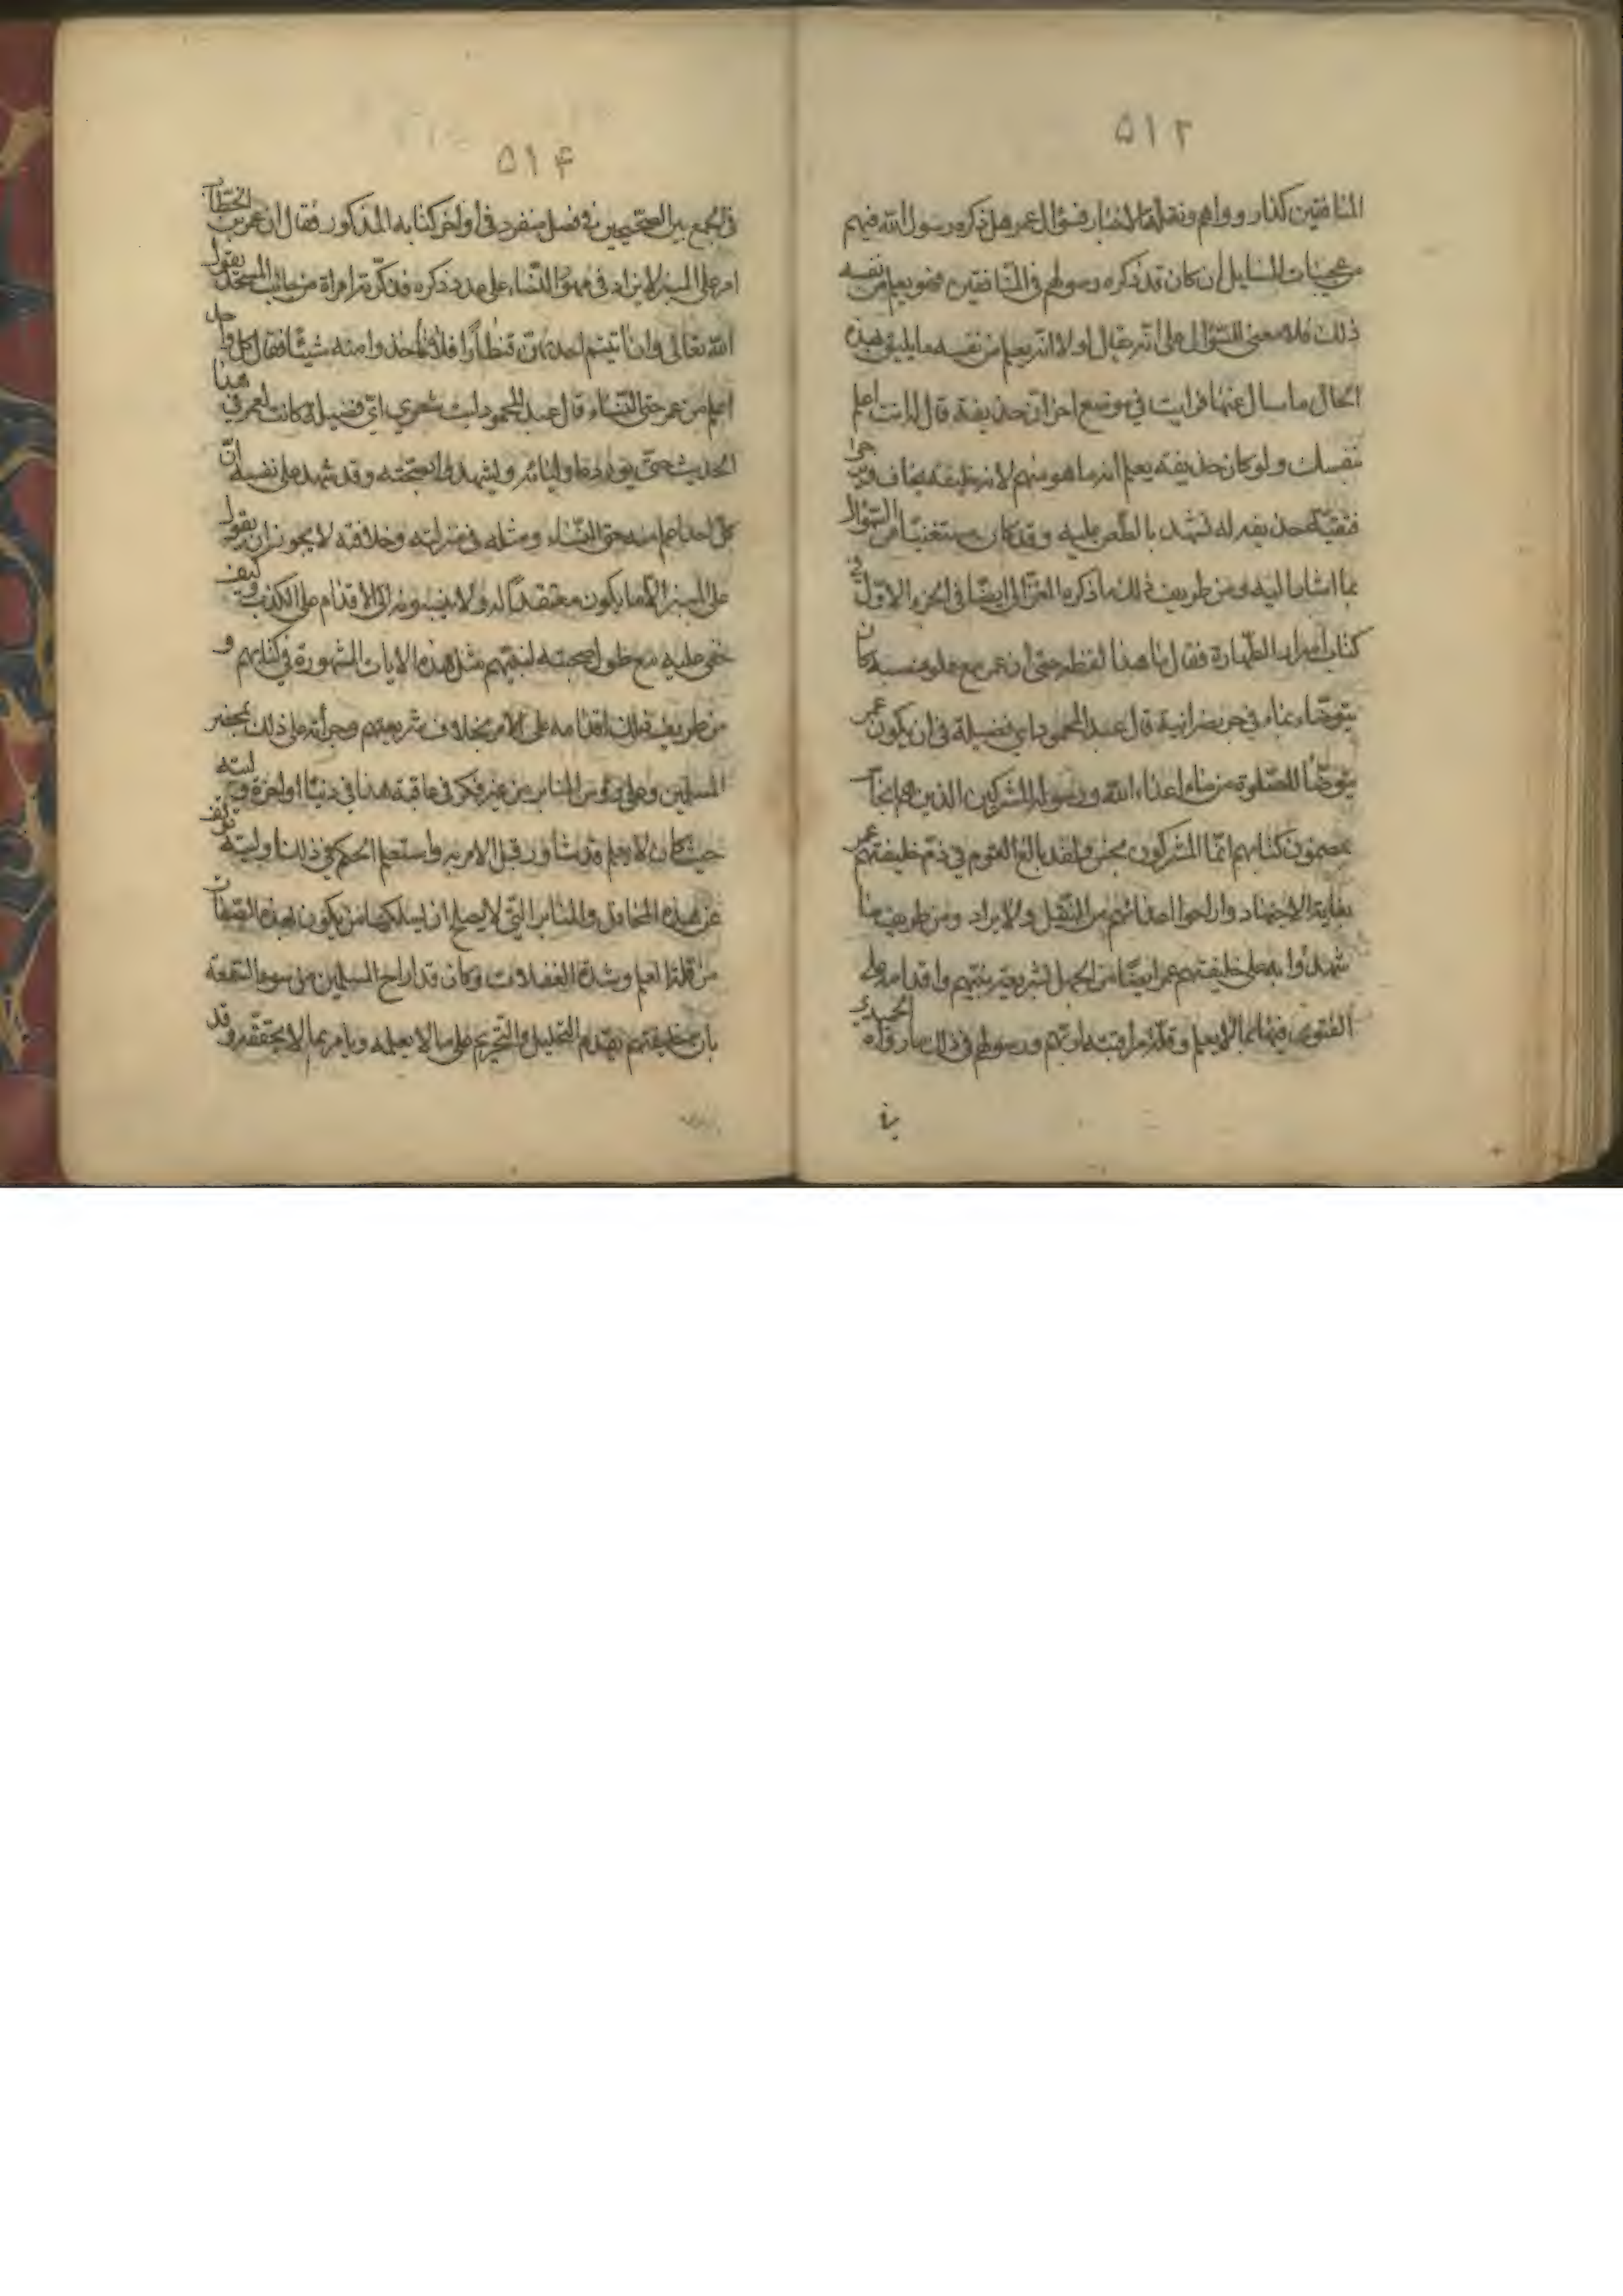 ۵۱۳
المنافقين كذار وواهم ونقلة الاخبار فسؤال عمر هل ذكره رسول الله فيهم
من عجيبات المسايل ان كان قد ذكره رسولهم في المنافقين فهو يعلم من نفسه
ذلك فلا معنى للسؤال على انه يقال اولا انه يعلم من نفسه ما يليق بهذه
الحال ما سال عنها فرايت في موضع اخر ان حذيفة قال له انت اعلم
بنفسك ولو كان حذيفة يعلم انه ما هو منهم لانه خليفة يخاف ويرجى
فتقية حذيفه له تشهد بالطعن عليه وقد كان مستغنيا من السؤال
بما اشار اليه ومن طريف ذلك ما ذكره الغزالي ايضا في الجزء الاول في
كتاب اسرار الطهارة فقال ما هذا لفظه حتى ان عمر مع علو منصبه كان
يتوضاء بماء في جر نصرانية قال عبد المحمود اي فضيلة في ان يكون عمر
يتوضا للصلوة من ماء اعداء الله ورسوله المشركين الذين هم انجاس
بمضمون كتابهم انما المشركون نجس ولقد بالغ القوم في ذم خليفتهم عمر
بغاية الاجتهاد واراحوا اعدائهم من النقل والايراد ومن طريف ما
شهدوا به على خليفتهم عمر ايضا من الجهل بشريعة نبيهم واقدامه على
الفتوى فيها بما لا يعلم وقلة مراقبته لربهم ورسولهم في ذلك ما رواه الحميدي
في
۵۱۴
في الجمع بين الصحيحين في فصل منفرد في اواخر كتابه المذكور فقال ان عمر بن الخطاب
امر على المنبر لا يزاد في مهور النساء على عدد ذكره فذكرته امراة من جانب المسجد يقول
الله تعالى وان اتيتم احديهن قنطارا فلا تاخذوا منه شيئا فقال كل واحد
اعلم من عمر حتى النساء قال عبد المحمود ليت شعري اي فضيلة كانت لعمر في هذا
الحديث حتى يوردها اولياؤه ويشهد بصحته وقد شهد على نفسه ان
كل احد اعلم منه حتى النساء ومثله في منزلته وخلافته لا يجوز ان يقول
على المنبر الا ما يكون معتقدا له ولا ينسبونه الى الاقدام على الكذب وكيف
خفى عليه مع طول صحبته لنبيهم مثل هذه الايات المشهورة في كتابهم و
من طريف ذلك اقدامه على الامر بخلاف شريعتهم وجرأته على ذلك بمحضر
المسلمين وعلى رؤس المنابر من غير فكر في عاقبة هذا في دنيا او اخرة وليته
حيث كان لا يعلم قد شاور قبل الامر به واستعلم الحكم في ذلك اوليته توقف
عن هذه المحافل والمنابر التي لا يصلح ان يسلكها من يكون بهذه الصفات
من قلة العلم وشدة الغفلات وكان قد اراح المسلمين من سوء السمعة
بان خليفتهم يقدم التحليل والتحريم على ما لا يعلمه ويامر بما لا يحققه وقد